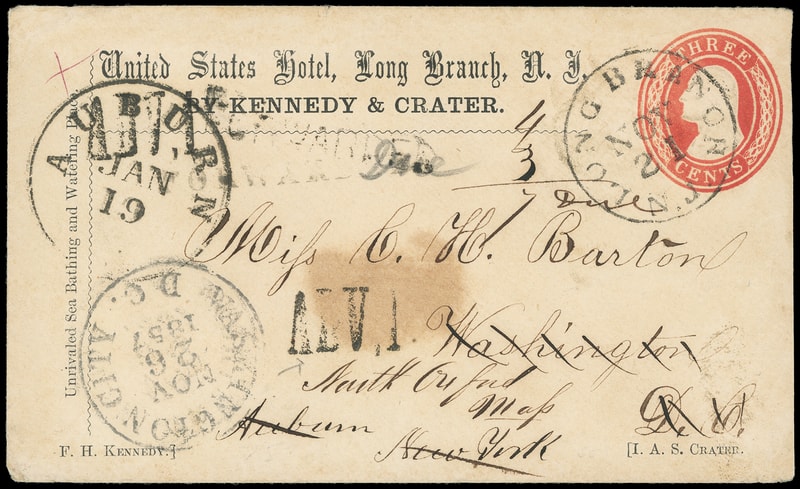 United States Hotel, Long Branch, N. J.
BY KENNEDY & CRATER.
Unrivaled Sea Bathing and Watering Place,
THREE
CENTS
LONG BRANCH
N.J.
NOV
AUBURN
JAN
19
ADV. 1
Due
4
3
7 Due
Miss C. H. Barton
Washington
D. C.
ADV. 1
North Oxford
Mass
Auburn
New York
WASHINGTON CITY. D.C.
NOV
6
1857
F. H. KENNEDY.]
[I. A. S. CRATER.